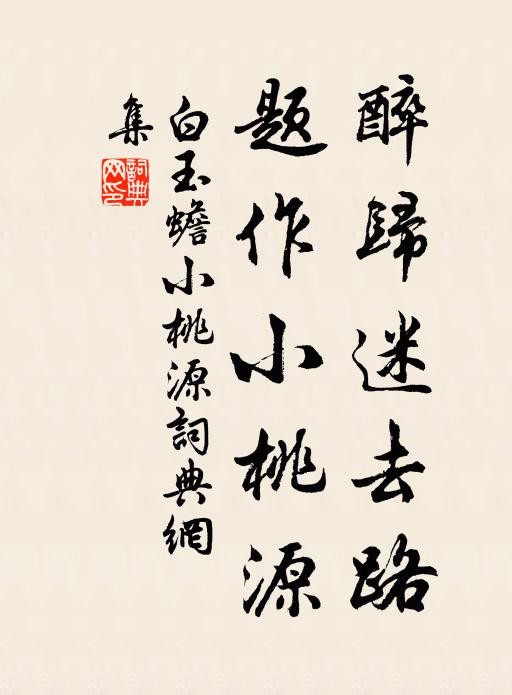 醉歸迷去路
題作小桃源
白玉蟾小桃源詞典網
集
詞典
網印